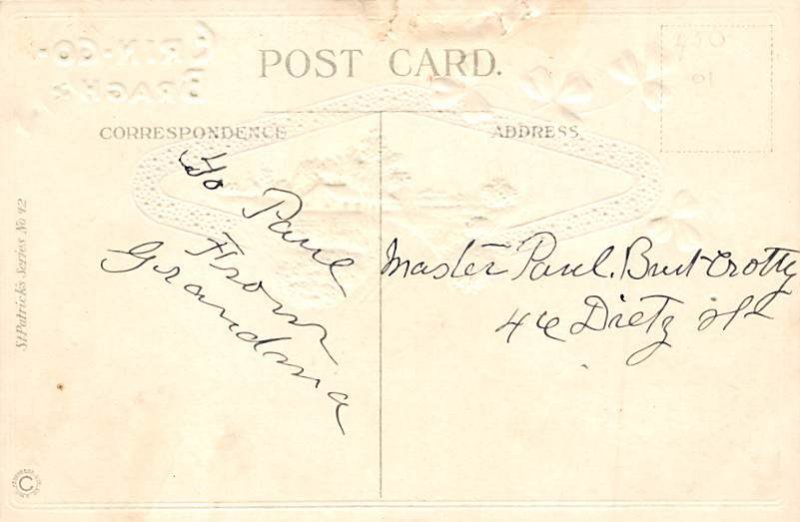 ERIN-GO-
BRAGH
POST CARD.
450
01
CORRESPONDENCE
ADDRESS.
To Paul
From
Grandma
Master Paul. Burt Crotty
46 Dietz St
St Patricks Series No 42
C